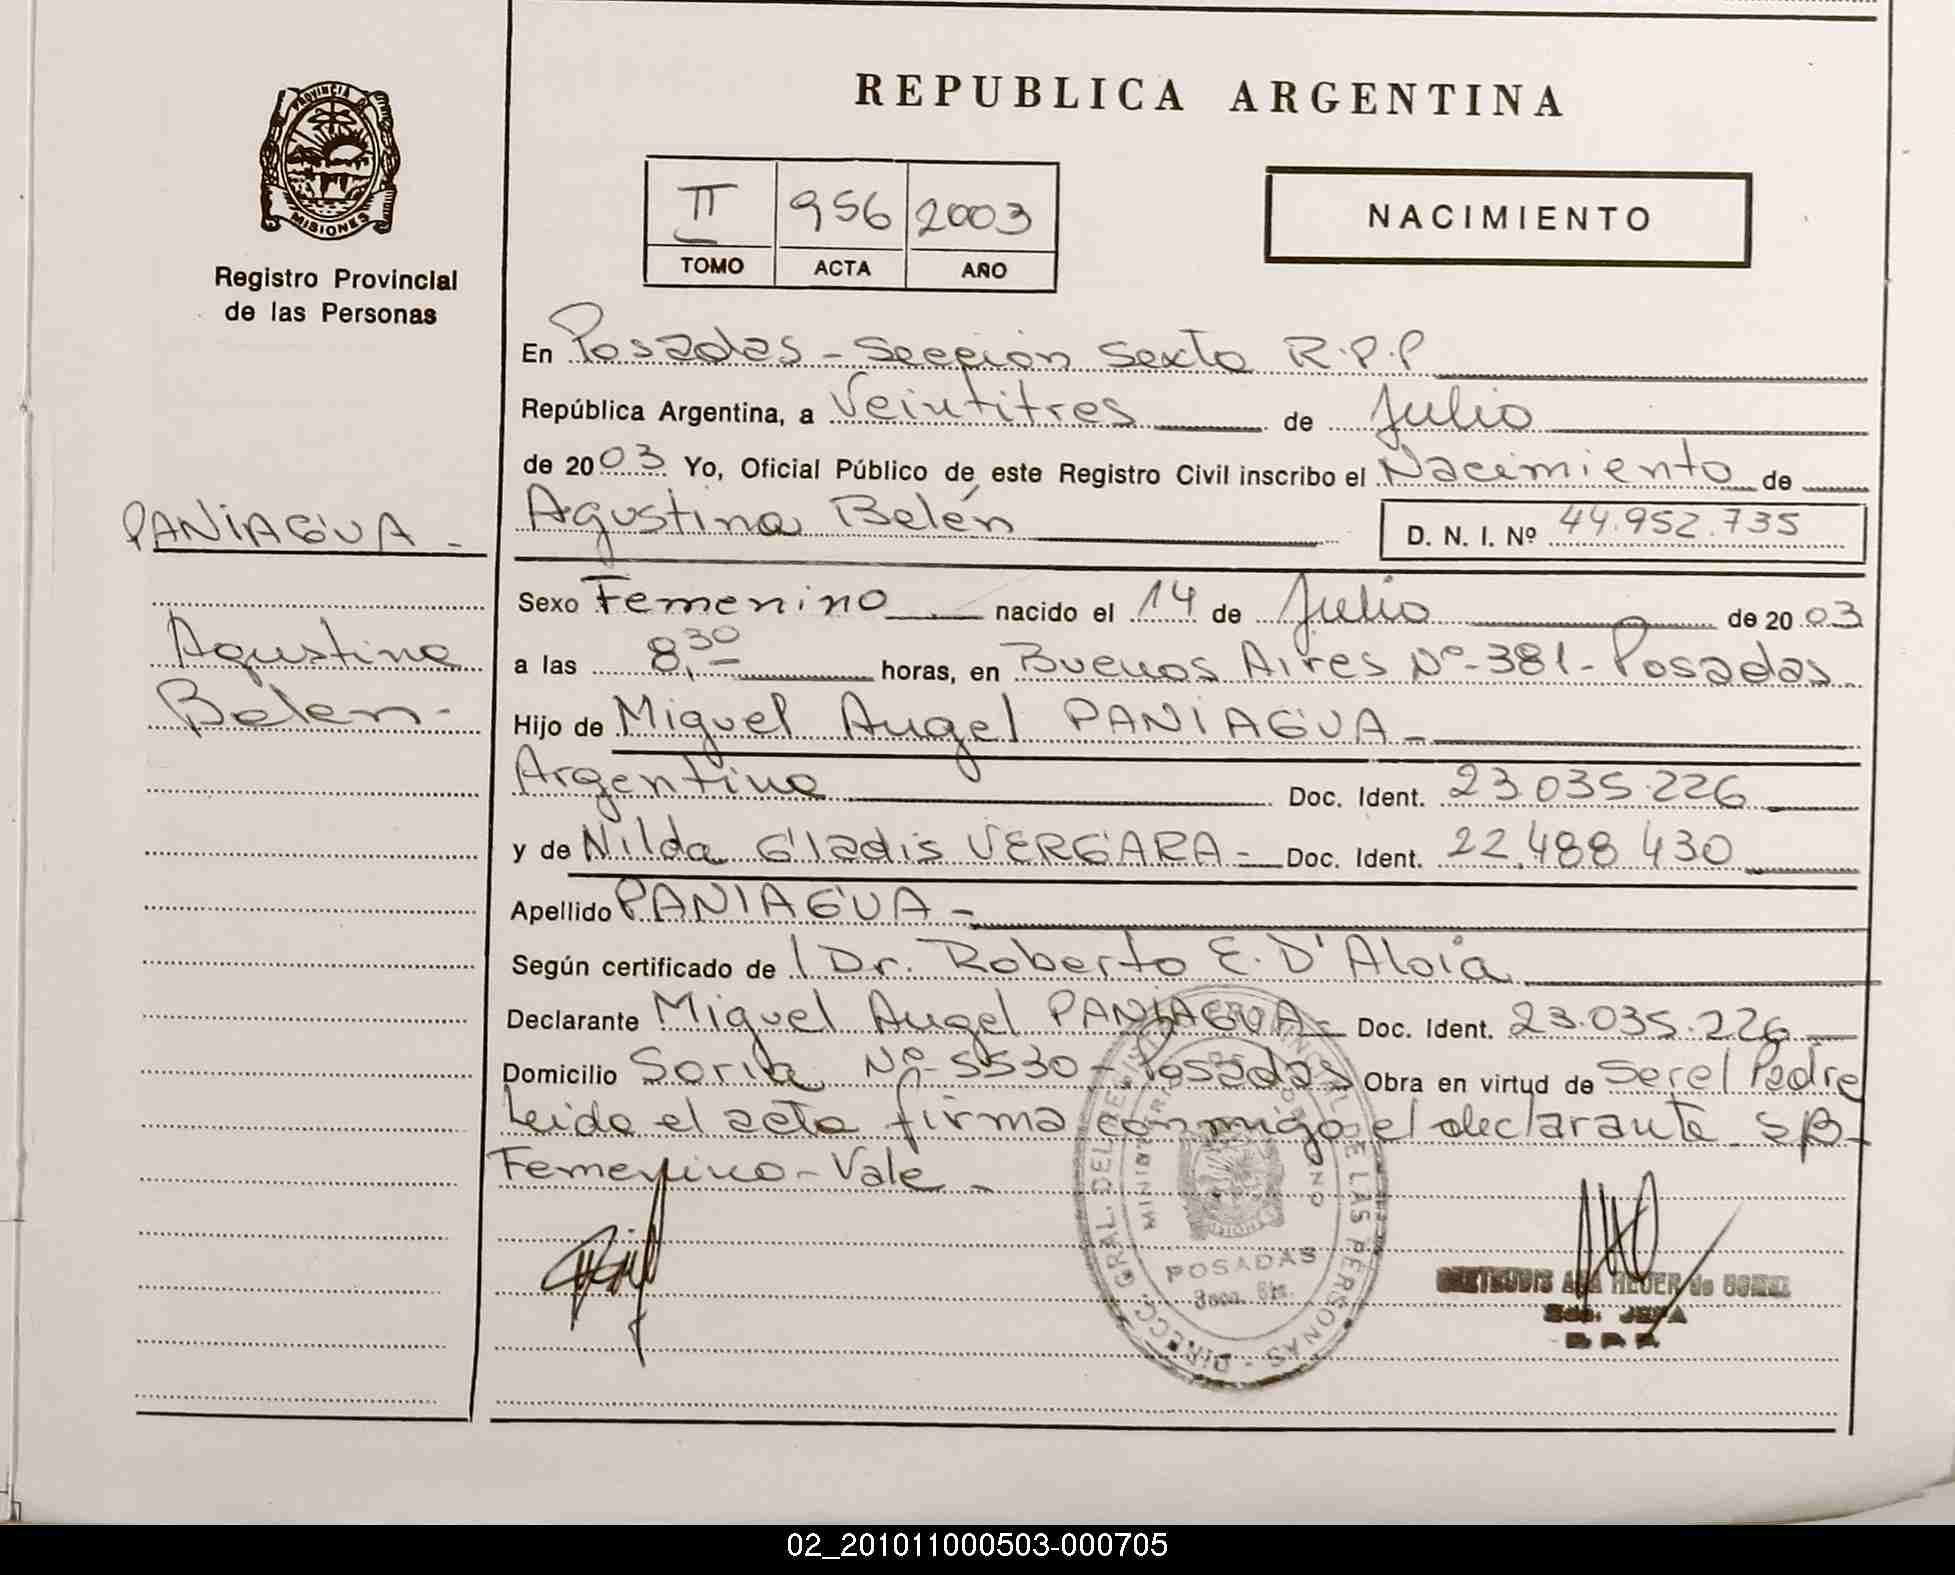 REPUBLICA ARGENTINA
PROVINCIA DE
MISIONES
Registro Provincial
de las Personas
II 956 2003
TOMO ACTA AÑO
NACIMIENTO
En Posadas - Sección Sexta R.P.P
República Argentina, a Veintitres de Julio
de 2003 Yo, Oficial Público de este Registro Civil inscribo el Nacimiento de
Agustina Belén D. N. I. Nº 44.952.735
PANIAGUA -
Agustina
Belen -
Sexo Femenino nacido el 14 de Julio de 2003
a las 8,30 horas, en Buenos Aires Nº - 381 - Posadas
Hijo de Miguel Angel PANIAGUA -
Argentino Doc. Ident. 23.035.226
y de Nilda Gladis VERGARA - Doc. Ident. 22.488.430
Apellido PANIAGUA -
Según certificado de Dr. Roberto E. D'Aloia
Declarante Miguel Angel PANIAGUA - Doc. Ident. 23.035.226
Domicilio Soria Nº - 5530 - Posadas Obra en virtud de Ser el Padre
Leida el acta firma conmigo el declarante S/B
Femenino - Vale -
DIRECC. GRAL. DEL REGISTRO PROVINCIAL DE LAS PERSONAS
MINISTERIO DE GOBIERNO
POSADAS
02_201011000503-000705